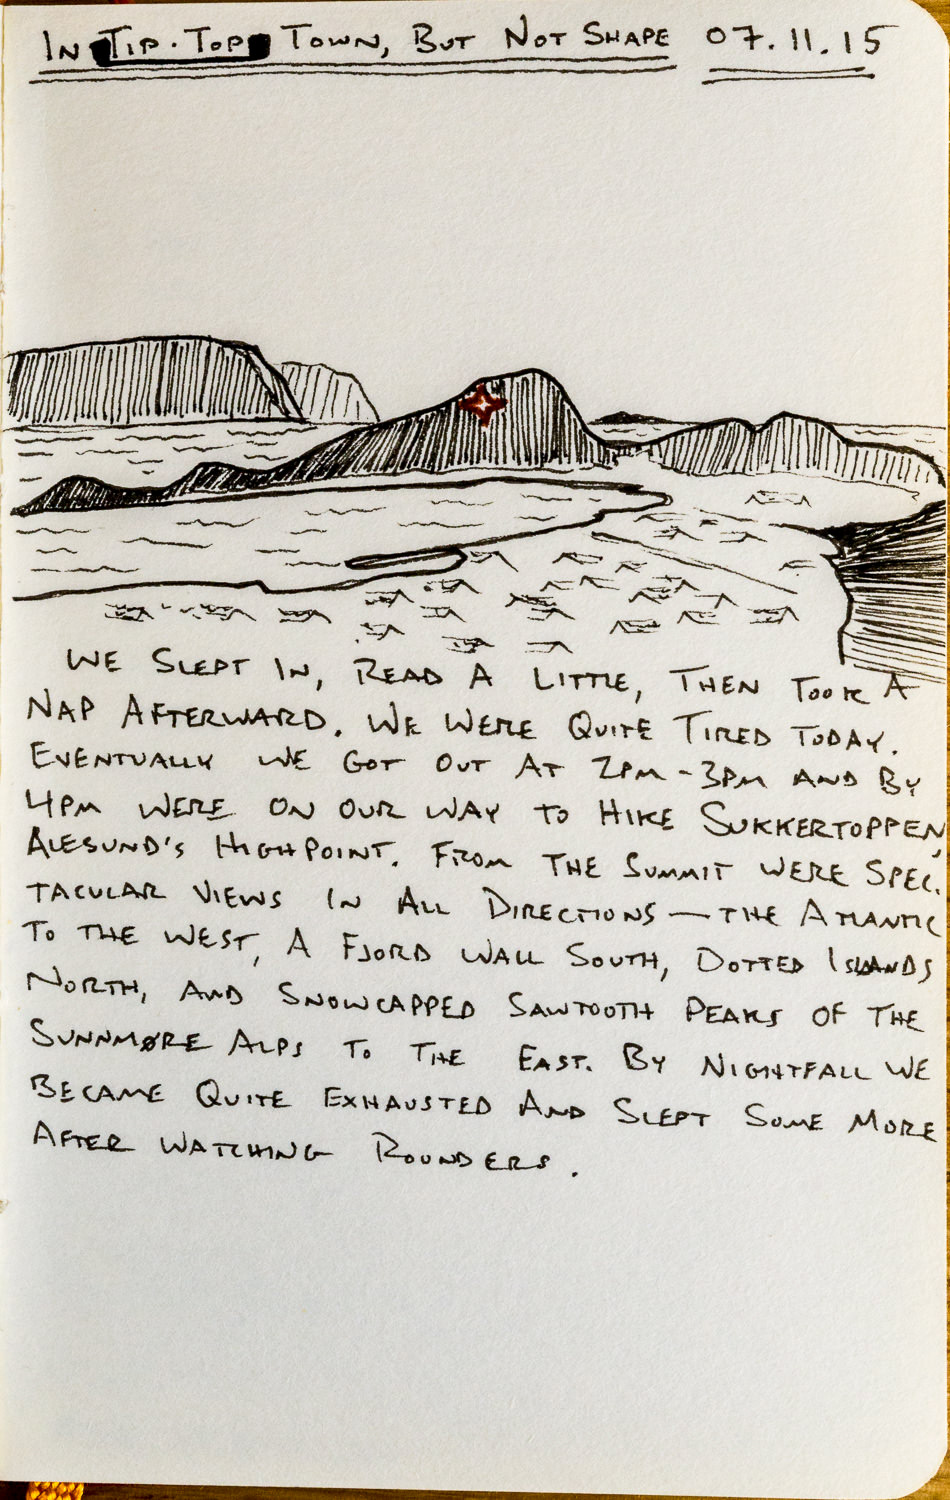 In Tip·Top Town, But Not Shape 07.11.15
We Slept In, Read A Little, Then Took A
Nap Afterward. We Were Quite Tired Today.
Eventually We Got Out At 2pm-3pm And By
4pm Were On Our Way To Hike Sukkertoppen,
Alesund's Highpoint. From The Summit Were Spec.
tacular Views In All Directions — The Atlantic
To The West, A Fjord Wall South, Dotted Islands
North, And Snowcapped Sawtooth Peaks Of The
Sunnmøre Alps To The East. By Nightfall We
Became Quite Exhausted And Slept Some More
After Watching Rounders.